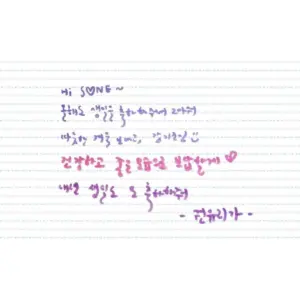 Hi S♡NE~
올해도 생일을 축하해주어 고마워
따뜻한 겨울 보내고, 감기조심 :)
건강하고 좋은 모습으로 보답할게 ♡
내년 생일도 또 축하해줘
- 권유리가 -